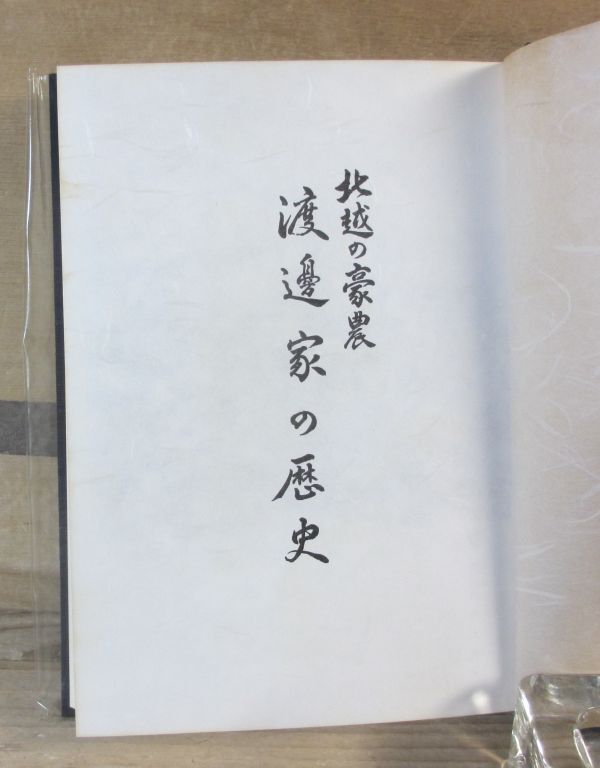 北越の豪農
渡邊家の歴史